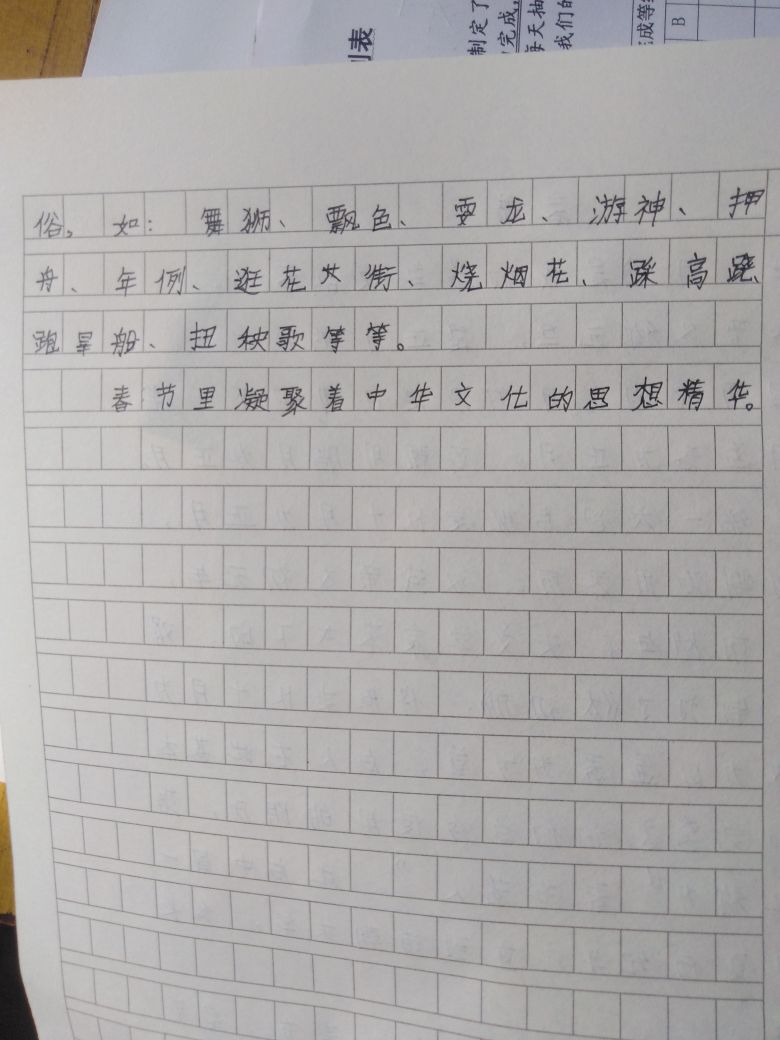 划表
制定了
完成,
每天抽
我们的
完成等级
B
俗。如：舞狮、飘色、耍龙、游神、押
舟、年例、逛花女街、烧烟花、踩高跷
跑旱船、扭秧歌等等。
春节里凝聚着中华文仕的思想精华。